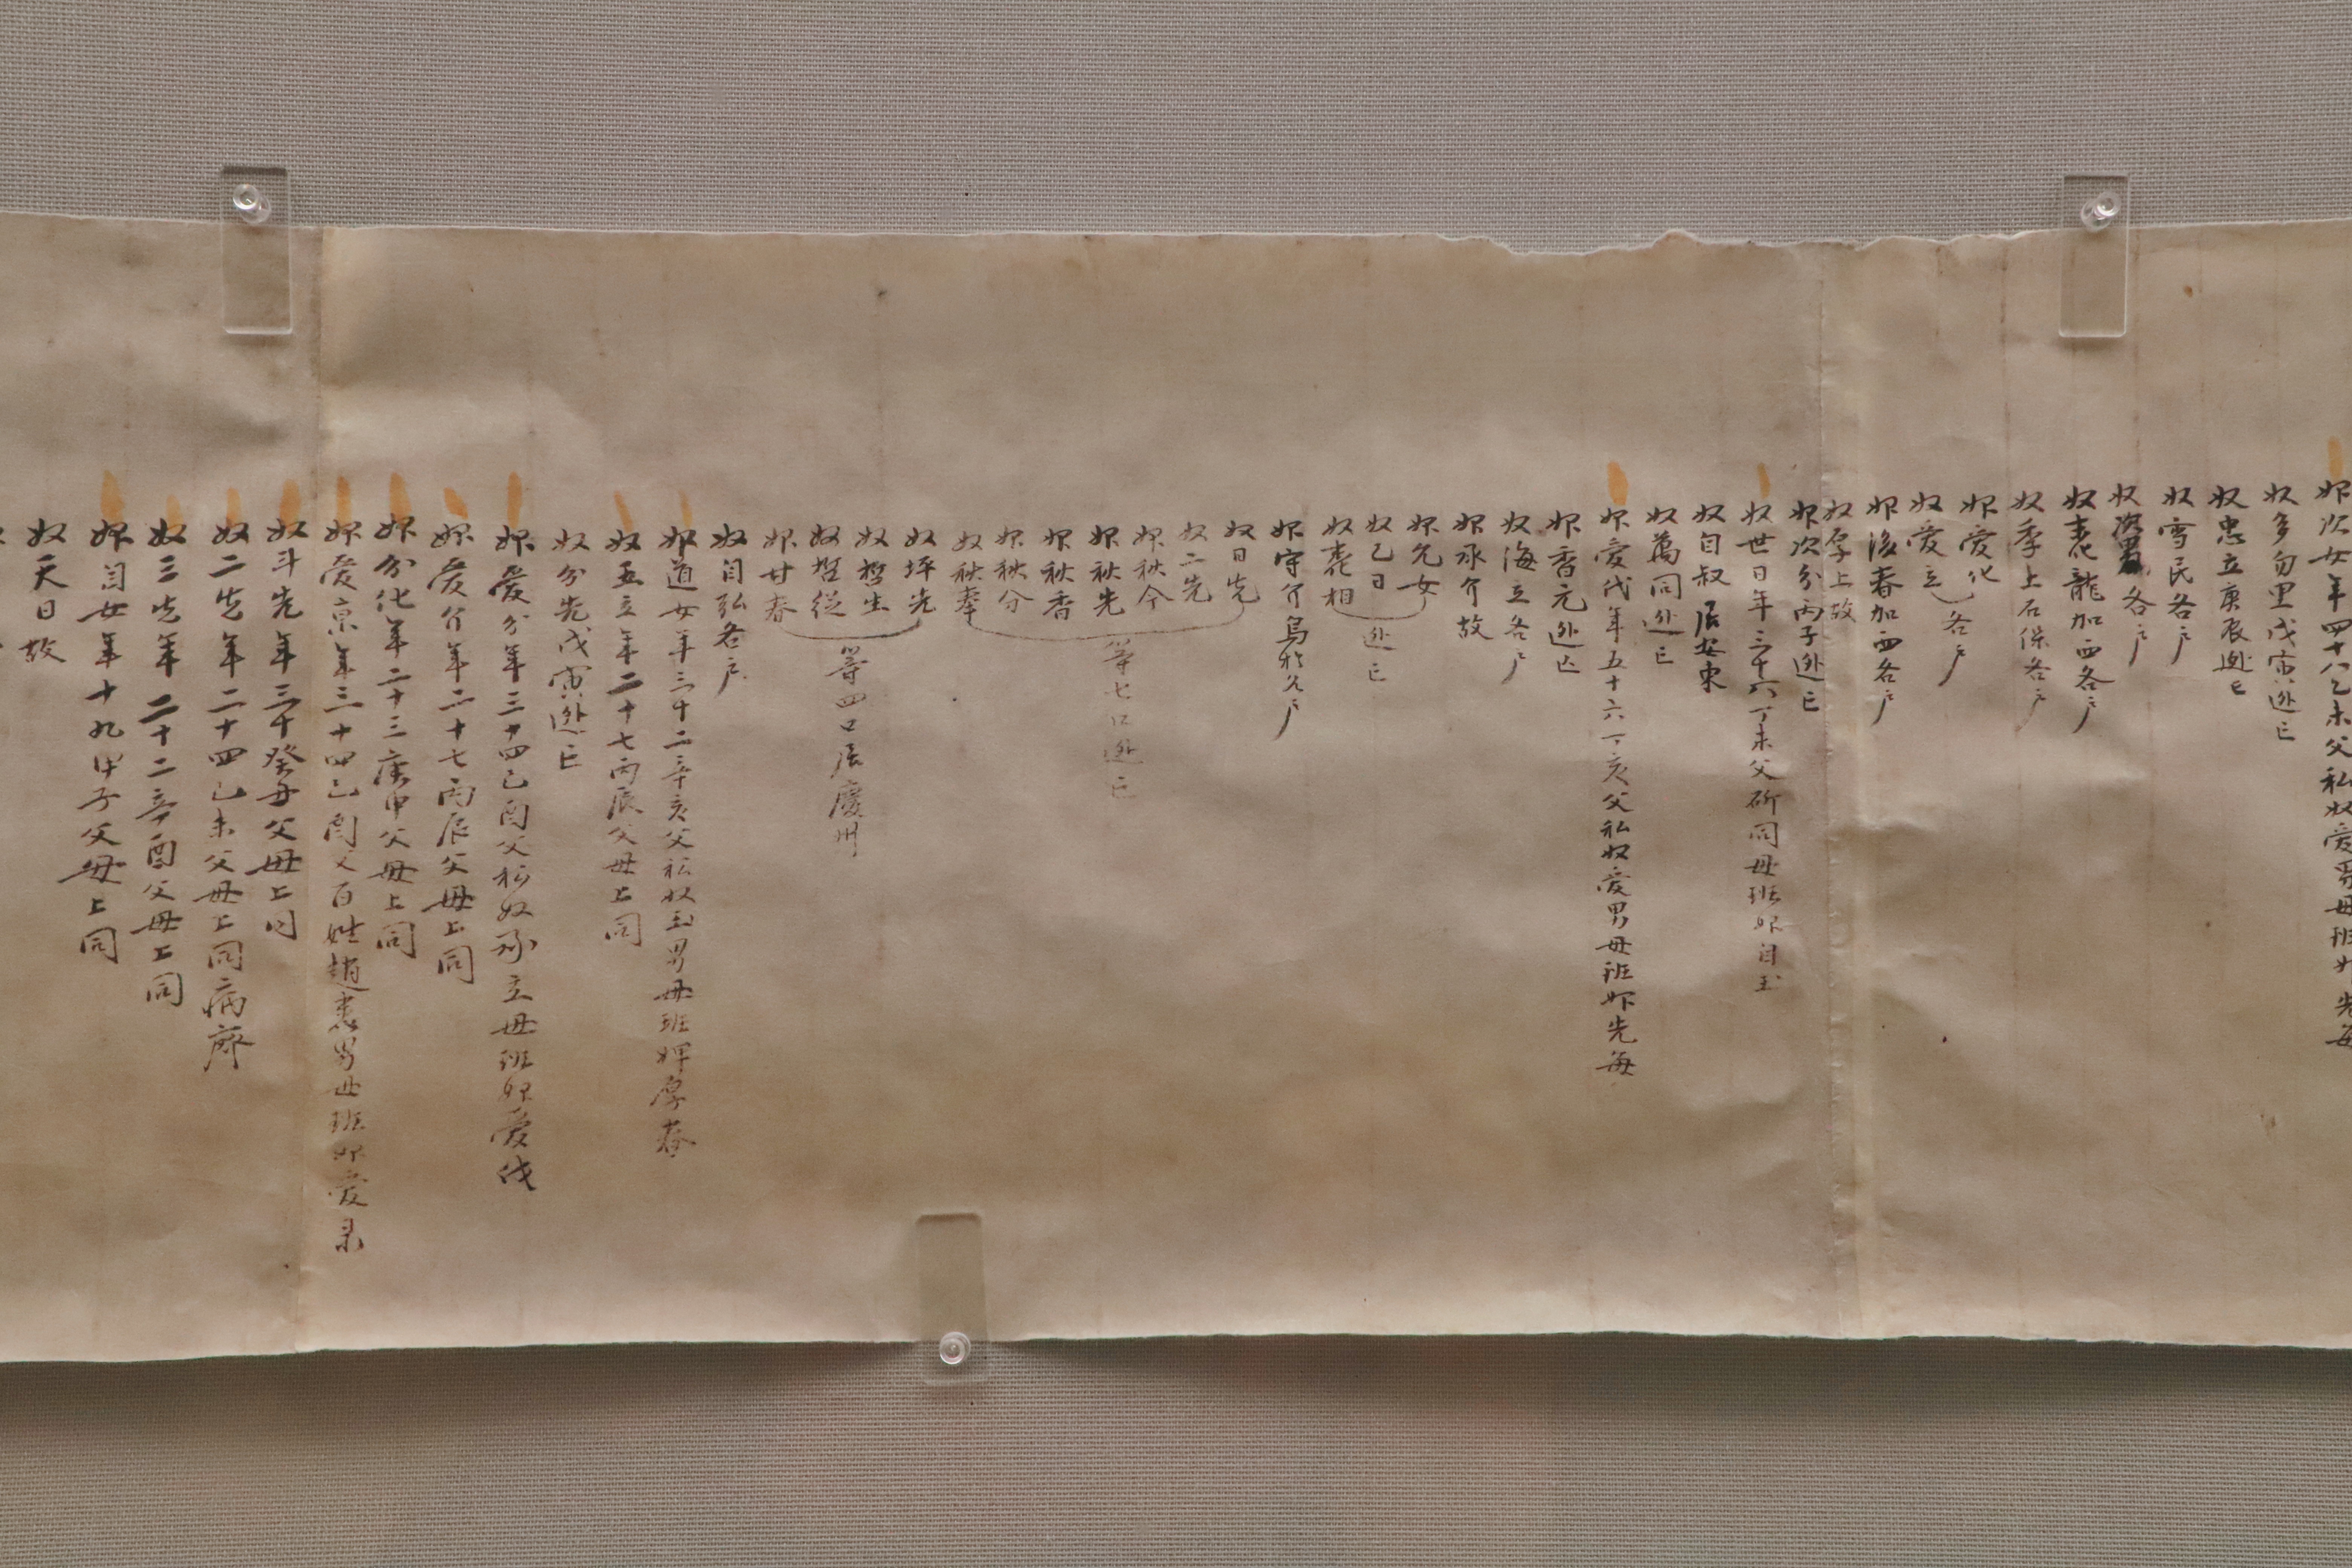 婢次女年四十八乙未父私奴愛男母班婢先每
奴多勿里戊寅逃亡
奴忠立庚辰逃亡
奴雪民各戶
奴各戶
奴龍加西各戶
奴季上石保各戶
婢愛化
奴愛立各戶
婢後春加西各戶
奴厚上故
婢次分丙子逃亡
奴世日年三十六丁未父斫同母班婢自玉
奴自叔居安東
奴萬同逃亡
婢愛代年五十六丁亥父私奴愛男母班婢先每
婢香元逃亡
奴海立各戶
婢承介故
婢允女
奴乙日
奴相
逃亡
婢守介各戶
奴日先
奴二先
婢秋今
婢秋先
婢秋香
婢秋分
奴秋奉
等七口逃亡
奴坪先
奴哲生
奴哲從
婢甘春
等四口居慶州
奴自弘各戶
婢道女年三十二辛亥父私奴玉男母班婢厚春
奴五立年二十七丙辰父母上同
奴分先戊寅逃亡
婢愛分年三十四己酉父私奴立母班婢愛代
婢愛介年二十七丙辰父母上同
婢分化年二十三庚申父母上同
婢愛京年三十四己酉父百姓趙男母班婢愛
奴斗先年三十癸丑父母上同
奴二先年二十四己未父母上同病廢
奴三先年二十二辛酉父母上同
婢女年十九甲子父母上同
奴天日故